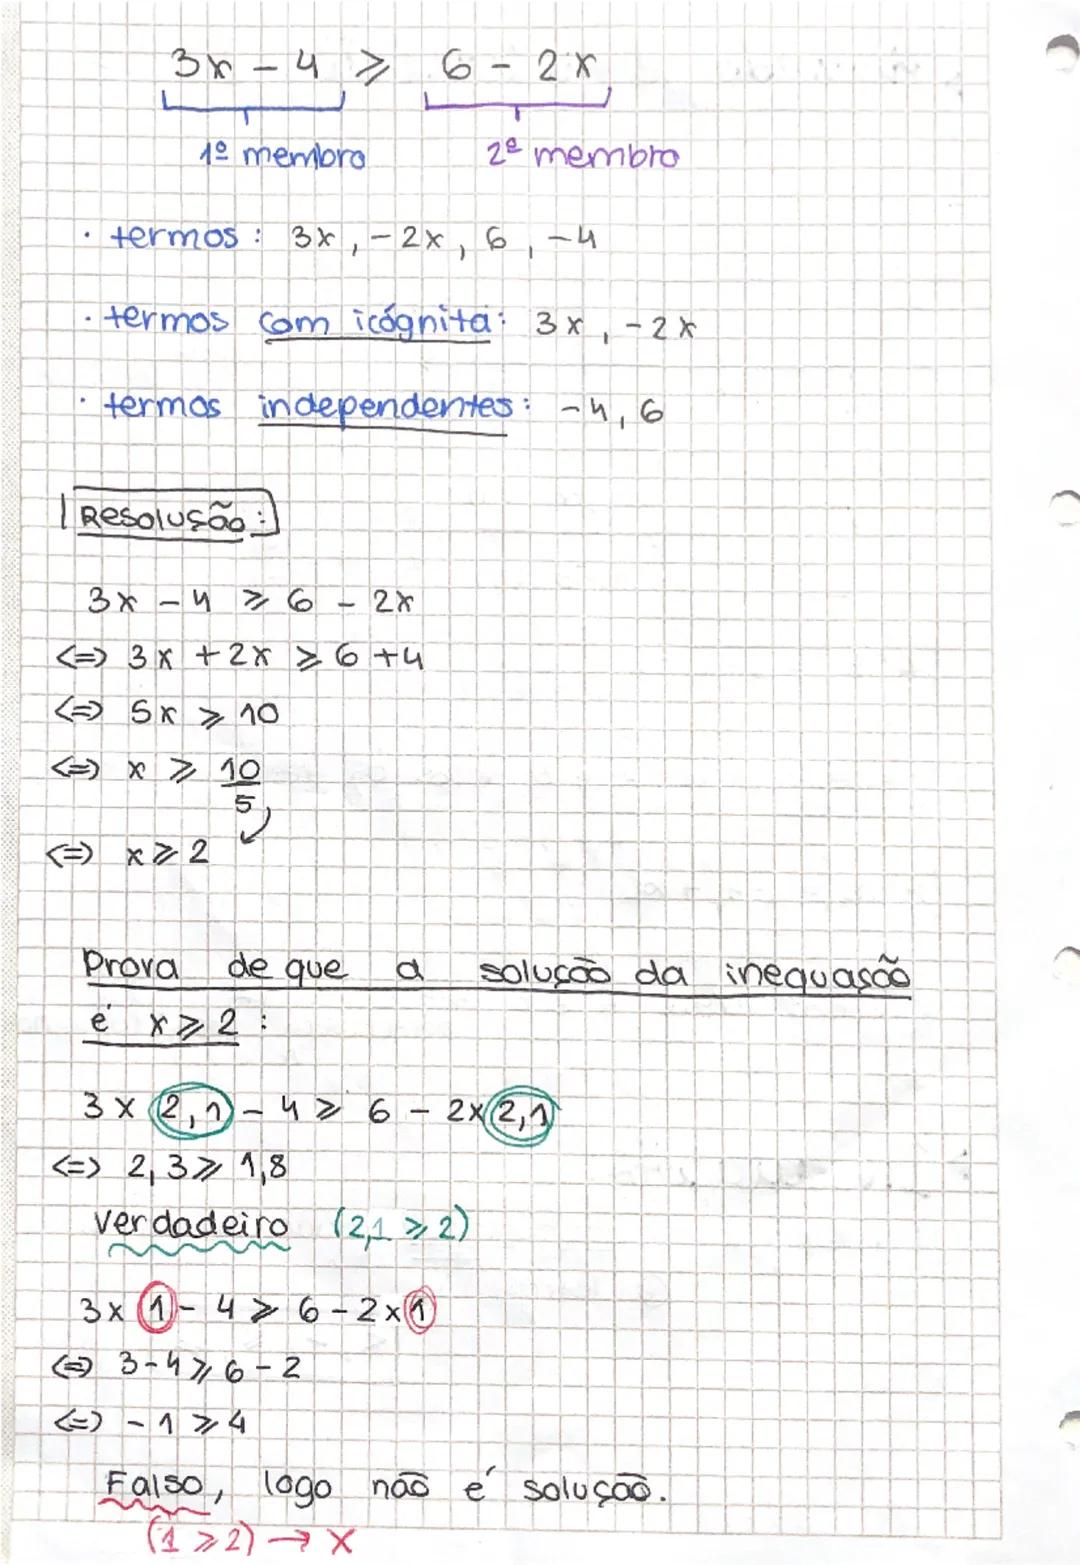 3x - 4 ⩾ 6 - 2x
1º membro 2º membro
· termos: 3x, -2x, 6, -4
· termos com icógnita: 3x, -2x
· termos independentes: -4, 6
Resolução:
3x - 4 ⩾ 6 - 2x
<=> 3x + 2x ⩾ 6 + 4
<=> 5x ⩾ 10
<=> x ⩾ 10/5
<=> x ⩾ 2
Prova de que a solução da inequação
é x ⩾ 2 :
3 x 2,1 - 4 ⩾ 6 - 2x 2,1
<=> 2,3 ⩾ 1,8
verdadeiro (2,1 ⩾ 2)
3x 1 - 4 ⩾ 6 - 2 x 1
<=> 3-4 ⩾ 6 - 2
<=> -1 ⩾ 4
Falso, logo não é solução.
(1 ⩾ 2) → X